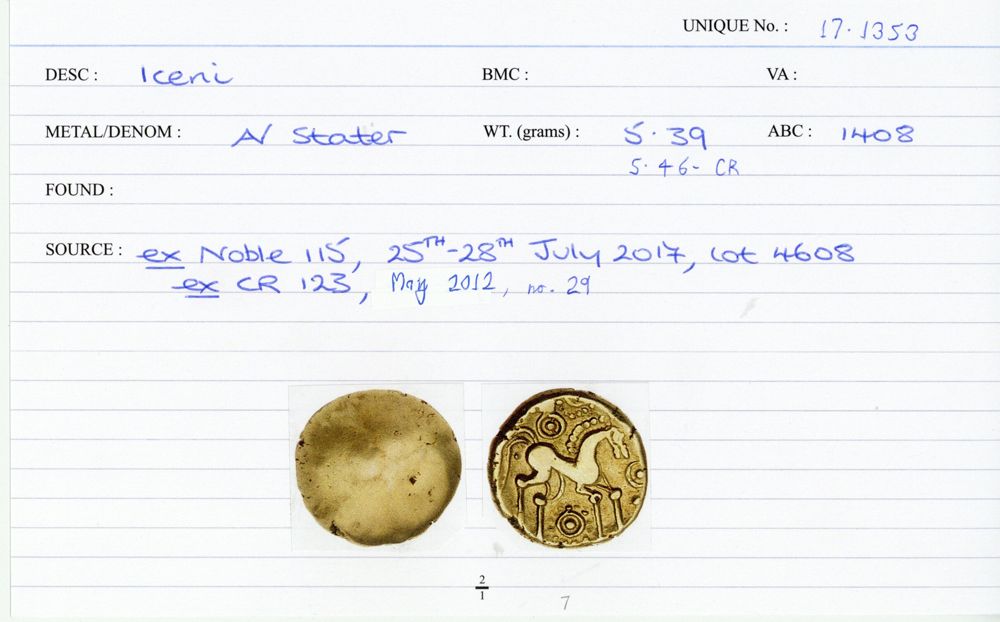 UNIQUE No. : 17.1353
DESC : Iceni BMC : VA :
METAL/DENOM : A/ Stater WT. (grams) : 5.39 ABC : 1408
5.46 - CR
FOUND :
SOURCE : ex Noble 115, 25TH-28TH July 2017, lot 4608
ex CR 123, May 2012, no. 29
2
1
7